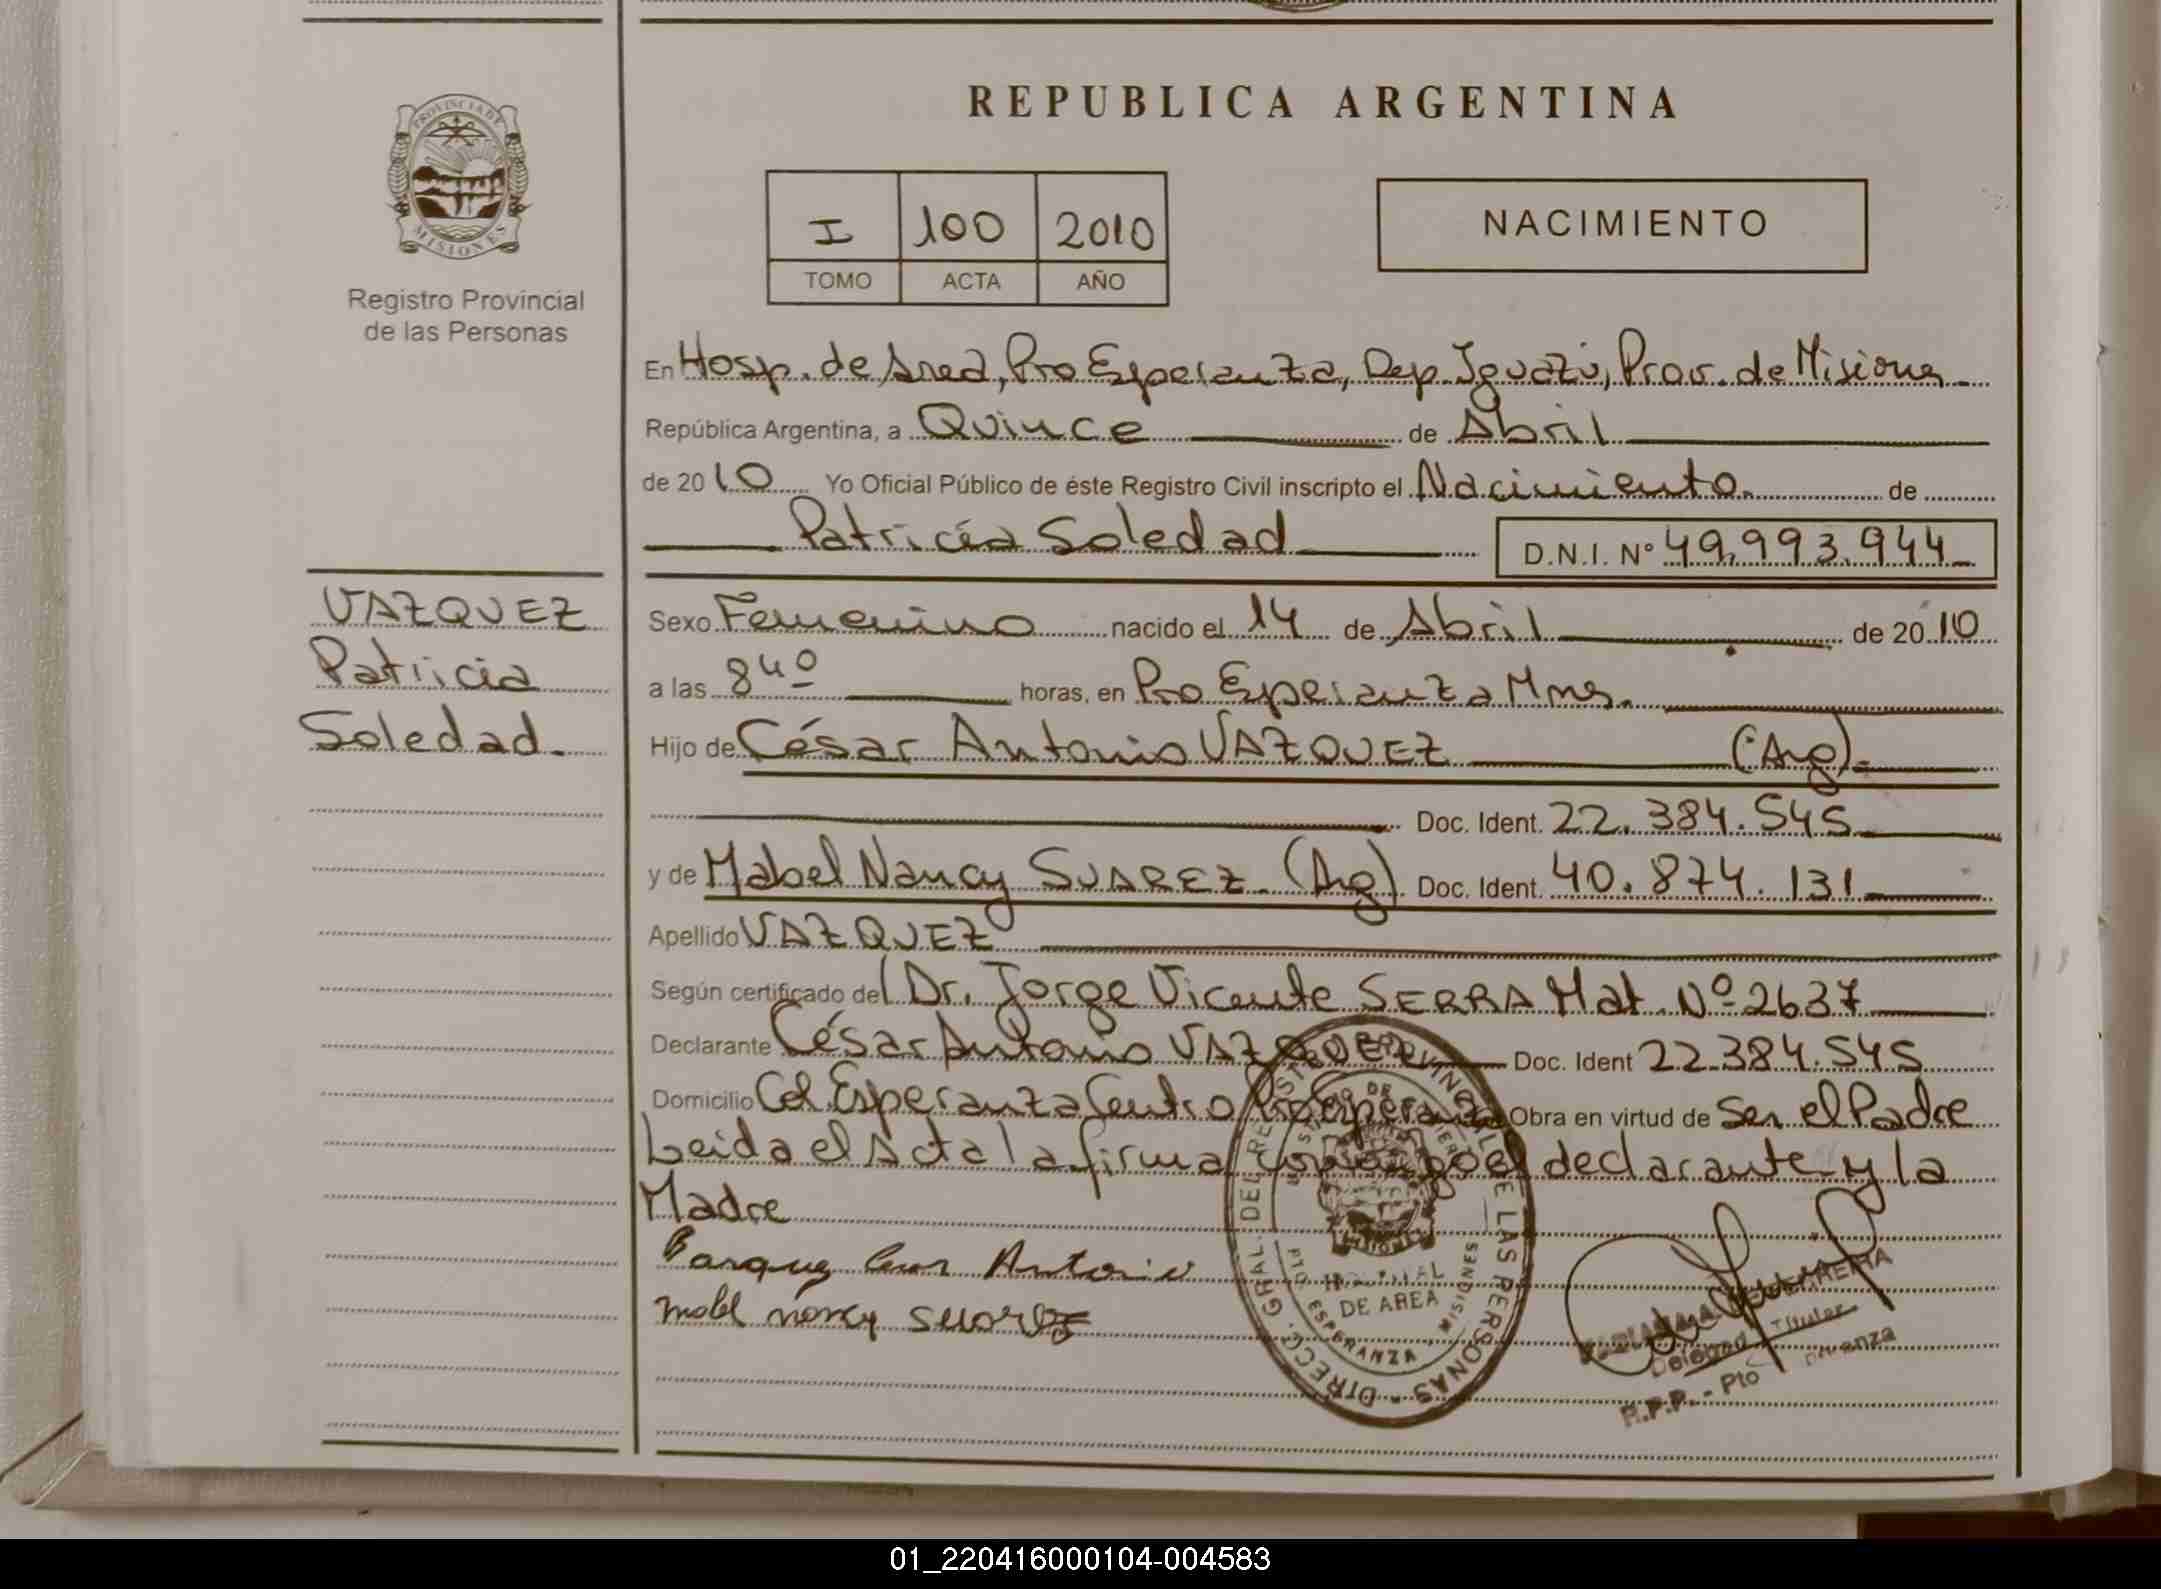 REPUBLICA ARGENTINA
PROVINCIA DE
MISIONES
Registro Provincial
de las Personas
I 100 2010
TOMO ACTA AÑO
NACIMIENTO
En Hosp. de Area, Pto Esperanza, Dep. Iguazú, Prov. de Misiones
República Argentina, a Quince de Abril
de 2010 Yo Oficial Público de éste Registro Civil inscripto el Nacimiento. de
Patricia Soledad D.N.I. Nº 49.993.944
VAZQUEZ
Patricia
Soledad.
Sexo Femenino nacido el 14 de Abril de 2010
a las 8 40 horas, en Pto Esperanza Mnes.
Hijo de César Antonio VAZQUEZ (Arg).
Doc. Ident. 22.384.545
y de Mabel Nancy SUAREZ. (Arg). Doc. Ident. 40.874.131
Apellido VAZQUEZ
Según certificado del Dr. Jorge Vicente SERRA Mat. Nº 2637
Declarante César Antonio VAZQUEZ Doc. Ident 22.384.545
Domicilio Col. Esperanza Centro Pto Esperanza Obra en virtud de Ser el Padre
Leida el Acta la firma conmigo el declarante y la
Madre
Antonio
nancy suarez
DIRECC. GRAL. DEL REGISTRO PROVINCIAL DE LAS PERSONAS
HOSPITAL
DE AREA
PTO. ESPERANZA MISIONES
Titular
R.P.P. - Pto
01_220416000104-004583